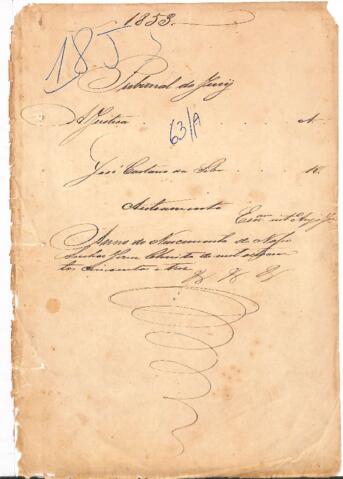 1853.
185
Tribunal do Jury
A Justiça . . . . . A.
63/A
José Caetano da Silva . . . . R.
Autuamento
Anno do Nascimento de Nosso
Senhor Jesus Christo de mil oitocen
tos cincoenta e tres